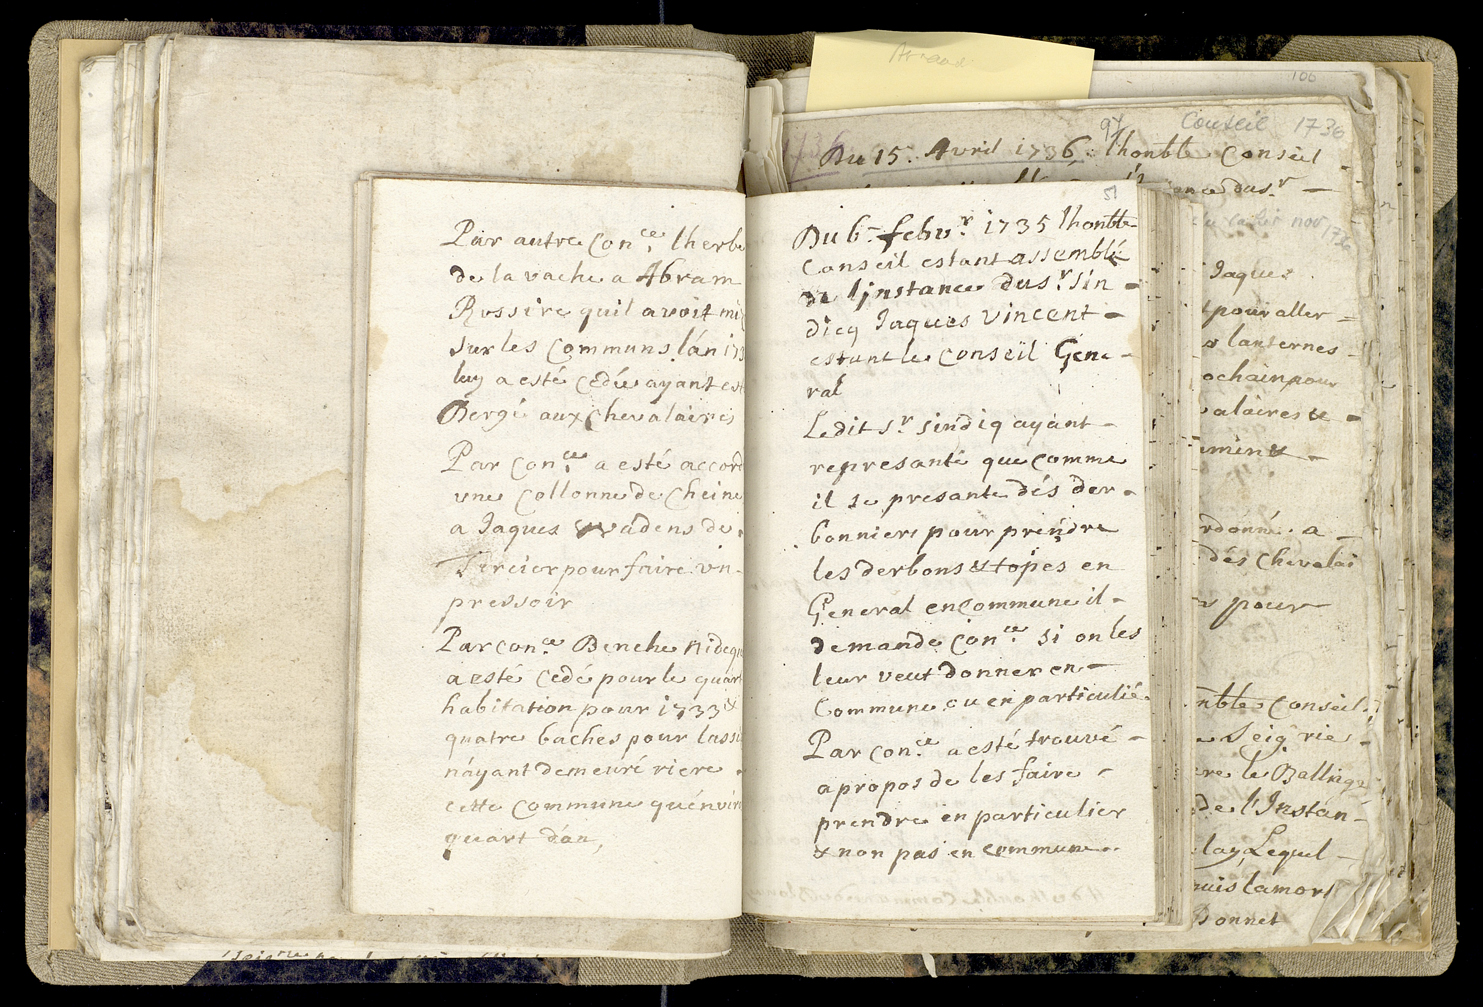 Par autre Con.ce lherbe
de la vache a Abram
Russire quil avoit mi
sur les Communs lán 173
luy a esté Cedée ayant est
Bergé aux Chevalaires
Par Con.ce a esté accord
une Collonne de Cheine
a Jaques Wadens de
Sercier pour faire un
pressoir
Par con.ce Benche Nideque
a esté Cedé pour le quart
habitation pour 1733 &
quatre baches pour lassu
náyant demeuré riere
cette Commune quénvir
quart dán,
51
Du 6.e febv.r 1735 lhonble
Conseil estant assemblé
de linstance du s.r Sin
dicq Jaques Vincent
estant le Conseil Gene
ral
Ledit S.r Sindiq ayant
represanté que comme
il se presante dés der
bonniers pour prendre
les derbons & topes en
General en Commune il
demande Con.ce si on les
leur veut donner en
Commune ou en particulié
Par con.ce a esté trouvé
a propos de les faire
prendre en particulier
& non pas en commune
Arnaud
100
97 Conseil 1736
1736
Du 15. Avril 1736. lhonble Conseil
ance du s.r
Jaques
pour aller
lanternes
ochain pour
alaires &
rdonné a
dés Chevalai
pour
nble Conseil
Seig.rie
ere le Ballinge
de l'Instán
lay Lequel
puis la mort
Bonnet